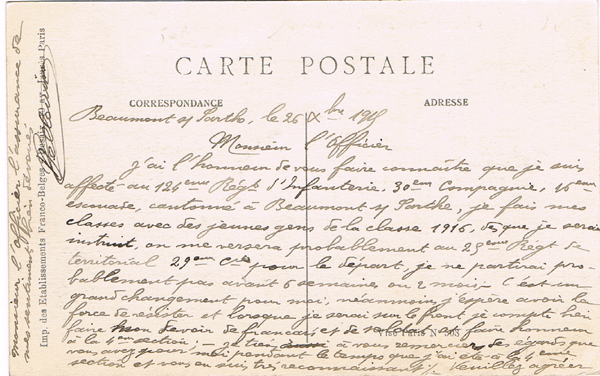 CARTE POSTALE
CORRESPONDANCE
ADRESSE
Beaumont s/ Sarthe, le 26 Xbre 1915
Monsieur l'Officier
J'ai l'honneur de vous faire connaître que je suis
affecté au 124eme Régt d'Infanterie, 30em Compagnie, 16em
escouade, cantonné à Beaumont s/ Sarthe, je fais mes
classes avec des jeunes gens de la classe 1916, dès que je serai
instruit, on me versera probablement au 25eme Régt de
territorial 29em Cie pour le départ, je ne partirai pro-
bablement pas avant 6 semaines ou 2 mois, - C'est un
grand changement pour moi, néanmoins j'espère avoir la
force de résister et lorsque je serai sur le front je compte bien
faire mon devoir de français et de soldat et faire honneur
à la 4em section; - je tiens aussi à vous remercier des égards que
vous avez pour moi pendant le temps que j'ai été à la 4eme
section et vous en suis très reconnaissant; - Veuillez agréer
Monsieur l'Officier l'assurance de
mes sentiments bien dévoués
Imp. des Etablissements Franco-Belges Paris
Visé Paris